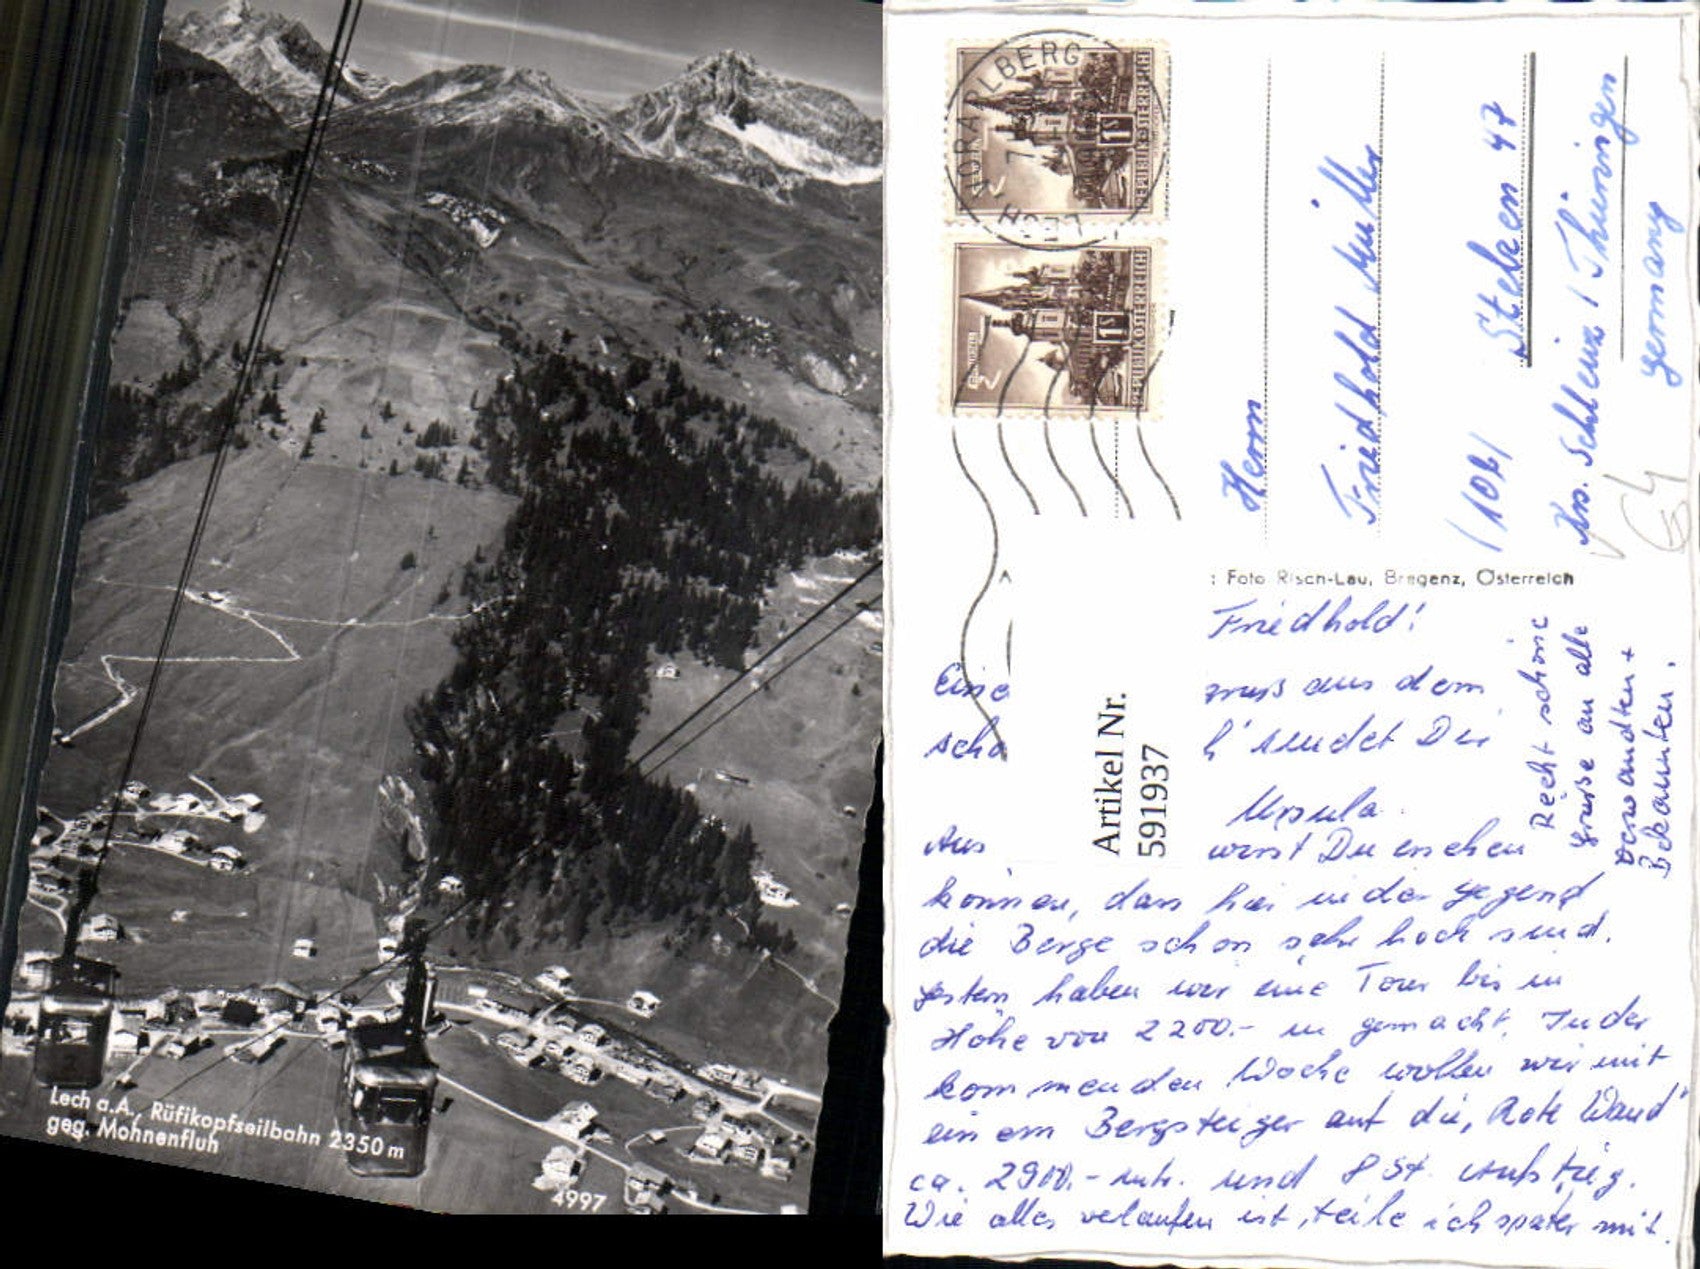 Lech a.A., Rüfikopfseilbahn 2350 m
geg. Mohnenfluh
4997
VORARLBERG
LECH
REPUBLIK ÖSTERREICH
REPUBLIK ÖSTERREICH
Herrn
Friedhold Müller
Stelzen 47
Krs. Schleiz / Thüringen
Germany
: Foto Risch-Lau, Bregenz, Österreich
Artikel Nr.
591937
Friedhold!
gruß aus dem
scho h' sendet Dir
Ursula
Aus wirst Du ersehen
können, dass hier in der Gegend
die Berge schon sehr hoch sind.
Gestern haben wir eine Tour bis in
Höhe von 2200.- m gemacht. In der
kommenden Woche wollen wir mit
einem Bergsteiger auf die „Rote Wand"
ca. 2900.- mtr. und 8 St. Aufstieg.
Wie alles verlaufen ist, teile ich später mit.
Recht schöne
Grüße an alle
Verwandten +
Bekannten.